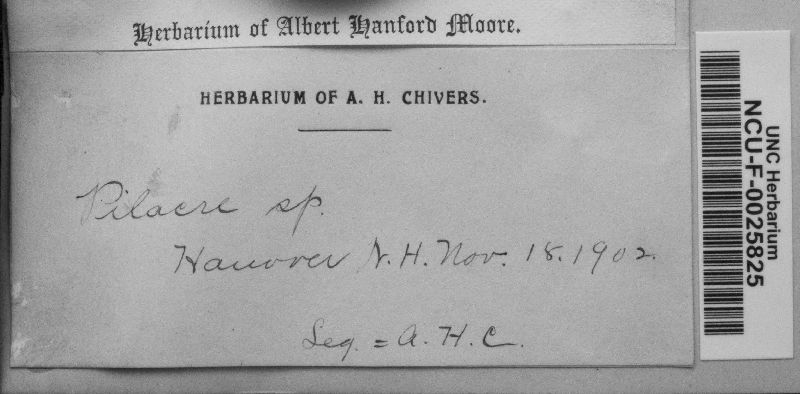 Herbarium of Albert Hanford Moore.
HERBARIUM OF A. H. CHIVERS.
Pilacre sp.
Hanover N. H. Nov. 18. 1902.
Leg. = A. H. C.
UNC Herbarium
NCU-F-0025825